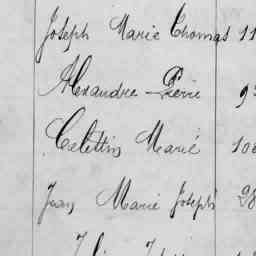 Joseph Marie Thomas 11
Alexandre Pierre 9
Celestin Marie 10
Jean Marie Joseph 28